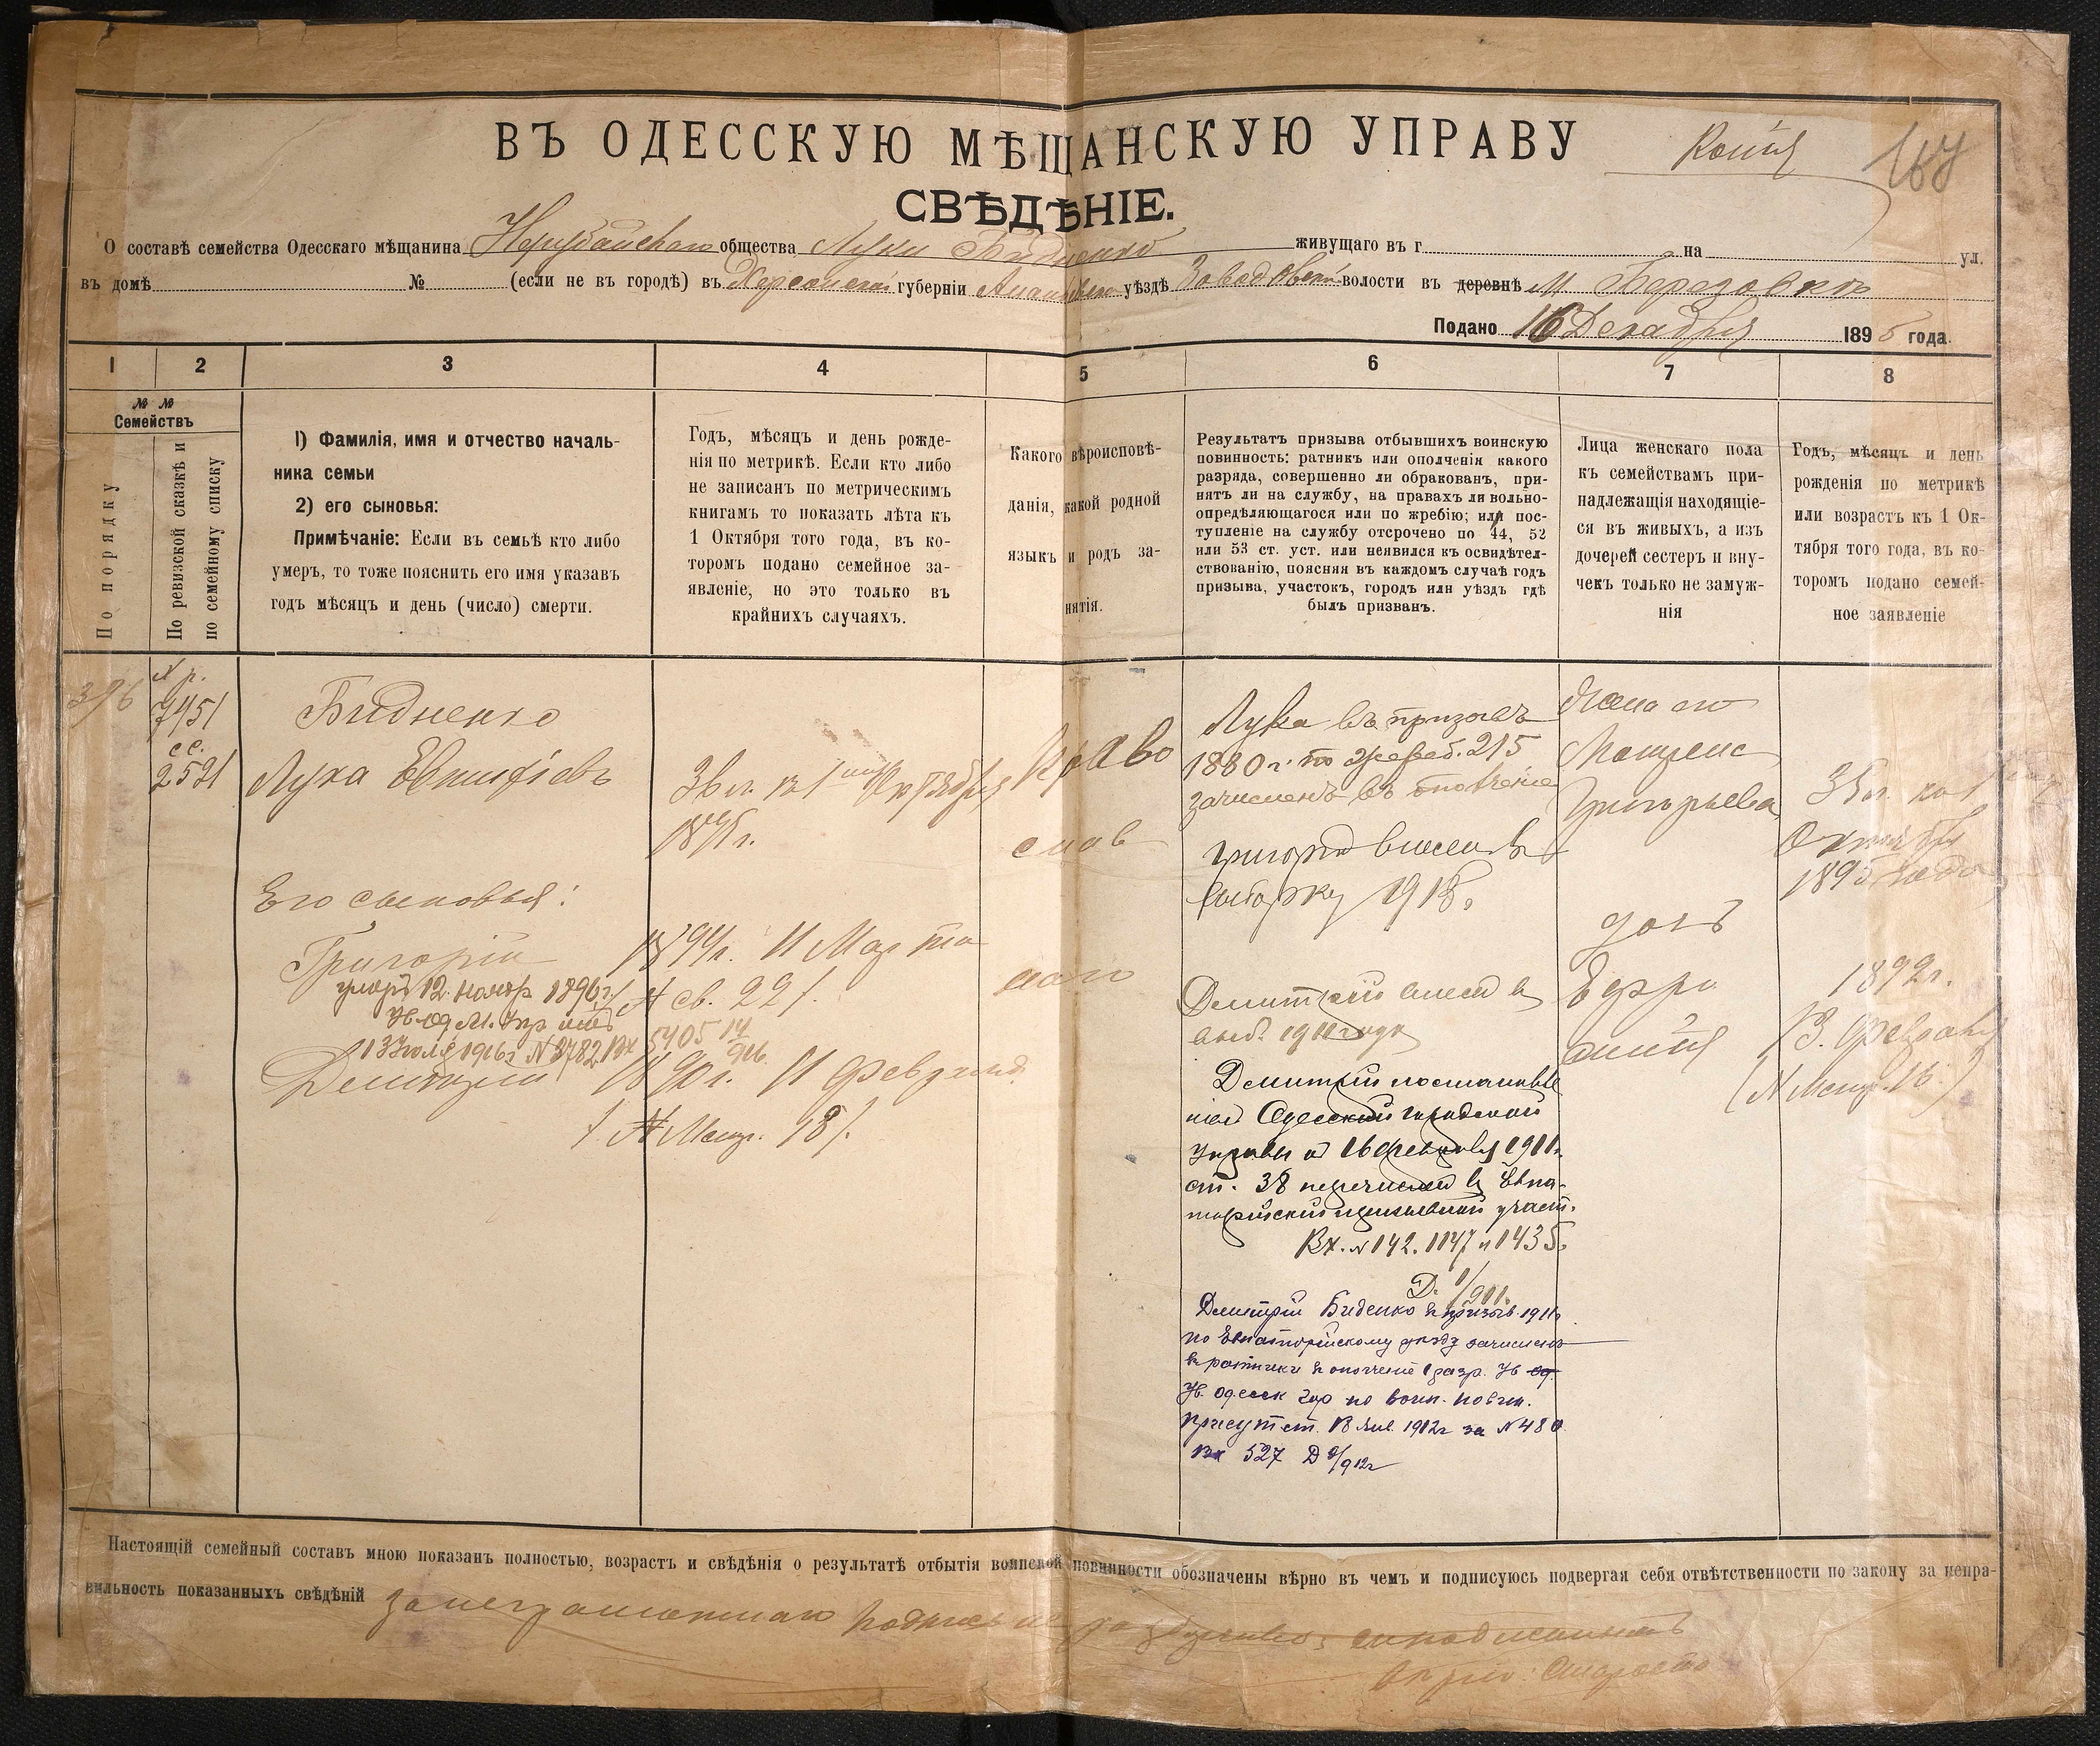 ВЪ ОДЕССКУЮ МѢЩАНСКУЮ УПРАВУ
Копія
СВѢДѢНІЕ.
О составѣ семейства Одесскаго мѣщанина Нерубайскаго общества Луки Бидненко живущаго въ г. на ул.
въ домѣ № (если не въ городѣ) въ Херсонской губерніи Ананьевск уѣздѣ волости въ деревнѣ М Березовкѣ
Подано 16 Декабря 1895 года.
1 2 3 4 5 6 7 8
№ №
Семействъ
По порядку
По ревизской сказкѣ и
по семейному списку
1) Фамилія, имя и отчество началь-
ника семьи
2) его сыновья:
Примѣчаніе: Если въ семьѣ кто либо
умеръ, то тоже пояснить его имя указавъ
годъ мѣсяцъ и день (число) смерти.
Годъ, мѣсяцъ и день рожде-
нія по метрикѣ. Если кто либо
не записанъ по метрическимъ
книгамъ то показать лѣта къ
1 Октября того года, въ ко-
торомъ подано семейное за-
явленіе, но это только въ
крайнихъ случаяхъ.
Какого вѣроисповѣ-
данія, какой родной
языкъ и родъ за-
нятія.
Результатъ призыва отбывшихъ воинскую
повинность: ратникъ или ополченія какого
разряда, совершенно ли обракованъ, при-
нятъ ли на службу, на правахъ ли вольно-
опредѣляющагося или по жребію; или пос-
тупленіе на службу отсрочено по 44, 52
или 53 ст. уст. или неявился къ освидѣтел-
ствованію, поясняя въ каждомъ случаѣ годъ
призыва, участокъ, городъ или уѣздъ гдѣ
былъ призванъ.
Лица женскаго пола
къ семействамъ при-
надлежащія находящіе-
ся въ живыхъ, а изъ
дочерей сестеръ и вну-
чекъ только не замуж-
нія
Годъ, мѣсяцъ и день
рожденія по метрикѣ
или возрастъ къ 1 Ок-
тября того года, въ ко-
торомъ подано семей-
ное заявленіе
396
7451
сс.
2521
Бидненко
Лука Евтифіевъ
1 Октября
Его сыновья:
Григорій
умеръ 12 ноябр 1896 г.
13 Іюля 1916 г. N 3782 Вх 5405
Дмитрій
1894 г. 11 Марта
св. 22
1890 г. 11 Февраля
18
Право
слав
наго
Лука въ призывъ
1880 г. по жереб. 215
зачисленъ въ ополченіе
Григорій внесенъ въ
1915
Дмитрій внесен в
1911 года
Дмитрій постановле
ніем Одесской городской
Управы от 16 февраля 1911 г.
ст. 38 перечислен в Евпа-
торійскій призывной участ.
Вх. N 142. 1147 и 1435.
Дмитрій Биденко в призыв 1911 г
по Евпаторійскому уѣзду зачислен
в ратники в ополченіе 1 разр. Ув од.
Ув. Одесск гор по воин. повин.
присутст. 13 янв. 1912 г за N 480
Вх 527
Жена его
Матрена
Григорьева
35 л. на 1
Октября
1895 года
дочь
Ефро
синія
1892 г.
13. Февраля
Настоящій семейный составъ мною показанъ полностью, возрастъ и свѣдѣнія о результатѣ отбытія воинской повинности обозначены вѣрно въ чемъ и подписуюсь подвергая себя отвѣтственности по закону за непра-
вильность показанныхъ свѣдѣній за неграмотнаго
Староста